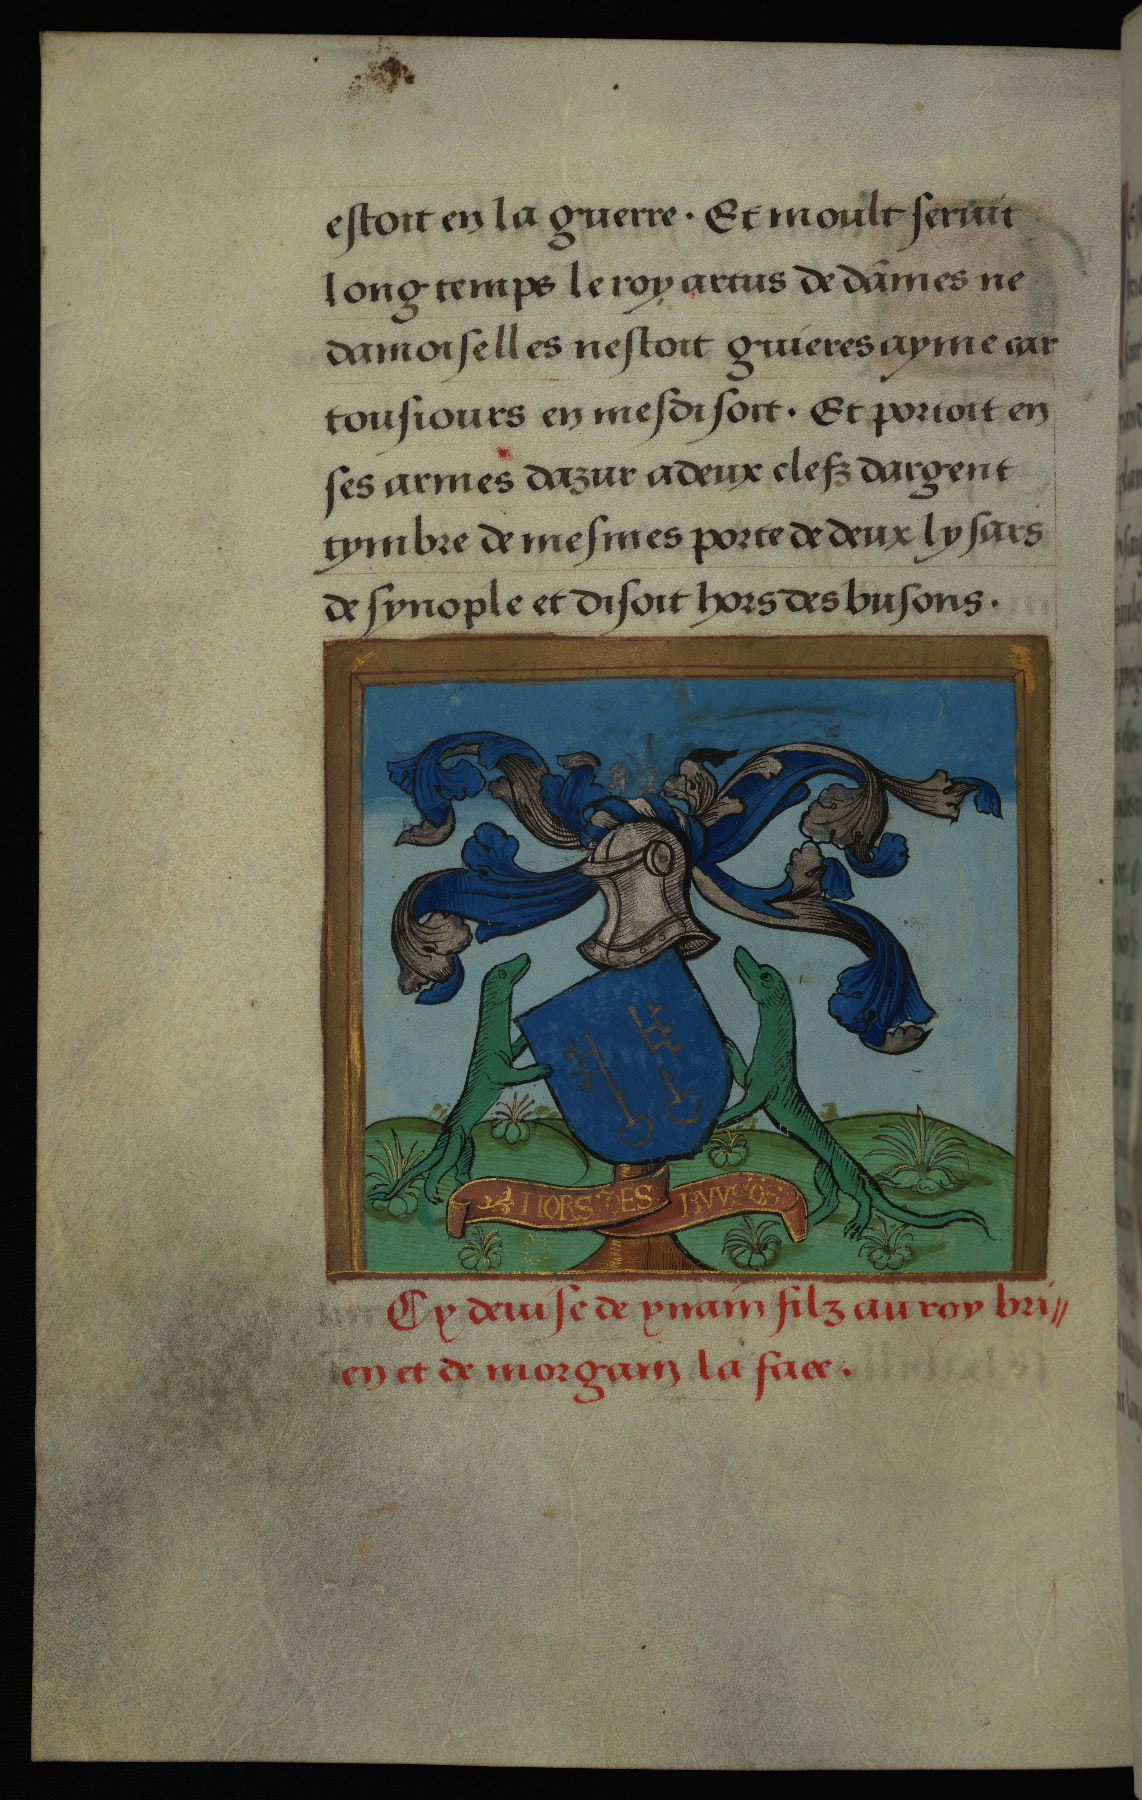 estoit en la guerre. Et moult seruit
long temps le roy artus de dames ne
damoiselles nestoit guieres ayme car
tousiours en mesdisoit. Et portoit en
ses armes dazur a deux clefz dargent
tymbre de mesmes porte de deux lysars
de synople et disoit hors des busons.
HORS DES
Cy deuise de yuain filz au roy bri//
en et de morgain la faee.